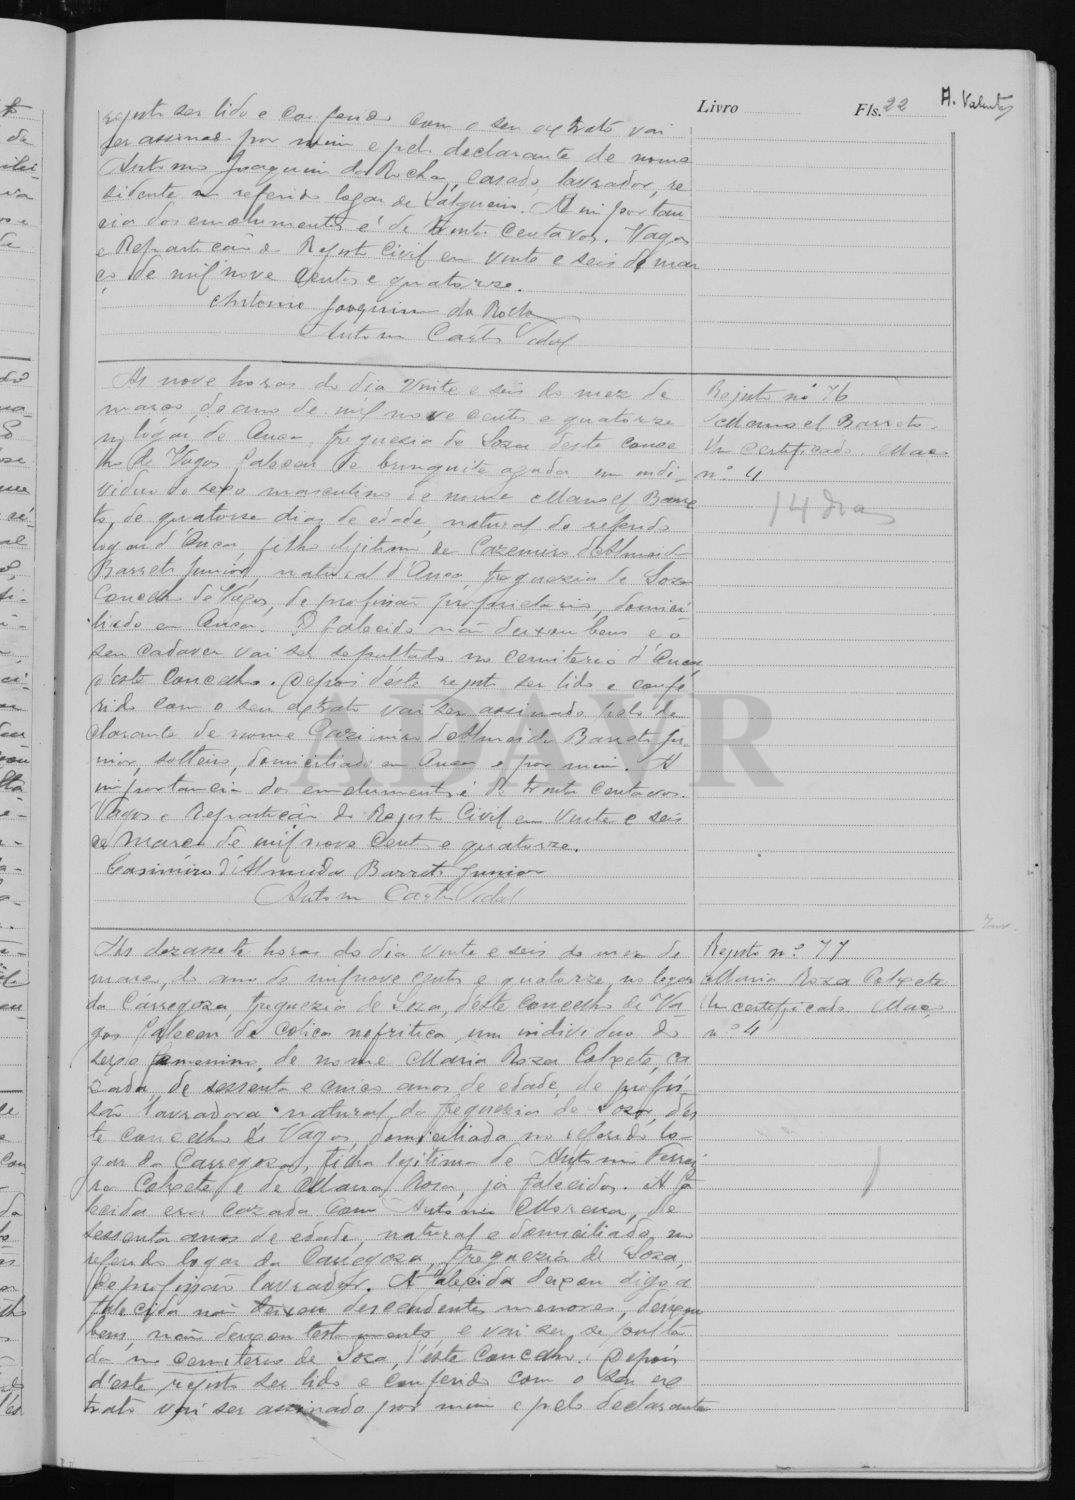 Livro Fls. 22 A. Valente
registo ser lido e conferido com o seu extrato vai
ser assinado por mim e pelo declarante de nome
Antonio Joaquim da Rocha, casado, lavrador, re
sidente no referido logar de Salgueiro. A importan
cia dos emolumentos é de trinta centavos. Vagos
e Repartição do Registo Civil em vinte e seis de mar
ço de mil nove centos e quatorze.
Antonio Joaquim da Rocha
Antonio Carlos Vidal
As nove horas do dia vinte e seis do mez de
março, do ano de mil nove centos e quatorze
no logar de Ouca, freguezia de Soza deste conce
lho de Vagos faleceu de bronquite aguda um indi-
viduo do sexo masculino de nome Manoel Barre
to, de quatorze dias de edade, natural do referido
logar d'Ouca, filho legitimo de Cazemiro d'Almeida
Barreto Junior, natural d'Ouca, freguezia de Soza
Concelho de Vagos, de profissão proprietario, domici
liado em Ouca. O falecido não deixou bens e o
seu cadaver vai ser sepultado no cemiterio d'Ouca,
d'este Concelho. Depois d'éste registo ser lido e confe
rido com o seu extrato vai ser assinado pelo de
clarante de nome Cazemiro d'Almeida Barreto Ju-
nior, solteiro, domiciliado em Ouca e por mim. A
importancia dos emolumentos é de trinta centavos.
Vagos e Repartição do Registo Civil em vinte e seis
de março de mil nove centos e quatorze.
Casimiro d'Almeida Barreto Junior
Antonio Carlos Vidal
Registo nº 76
Manoel Barreto.
Um certificado. Maço
nº 4
14 dias
As dezassete horas do dia vinte e seis do mez de
março, do ano de mil nove centos e quatorze, no logar
da Carregosa, freguezia de Soza, deste concelho de Va-
gos faleceu de colica nefritica um individuo do
sexo femenino, de nome Maria Roza Calxeta, ca
zada, de sessenta e cinco anos de edade, de profis
são lavradora, natural da freguezia de Soza, des
te concelho de Vagos, domiciliada no referido lo-
gar da Carregosa, filha legitima de Antonio Ferrei
ra Calxeta e de Maria Rosa, já falecidos. A fa
lecida era cazada com Antonio Moreira, de
sessenta anos de edade, natural e domiciliado no
referido logar da Carregosa, freguezia de Soza,
de profissão lavrador. A falecida deixou digo a
falecida não deixou descendentes menores, deixou
bens, não deixou testamento e vai ser sepulta
da no cemiterio de Soza, d'este concelho. Depois
d'este registo ser lido e conferido com o seu ex
trato vai ser assinado por mim e pelo declarante
Registo nº 77
Maria Roza Calxeta
Um certificado Maço
nº 4
ADAVR